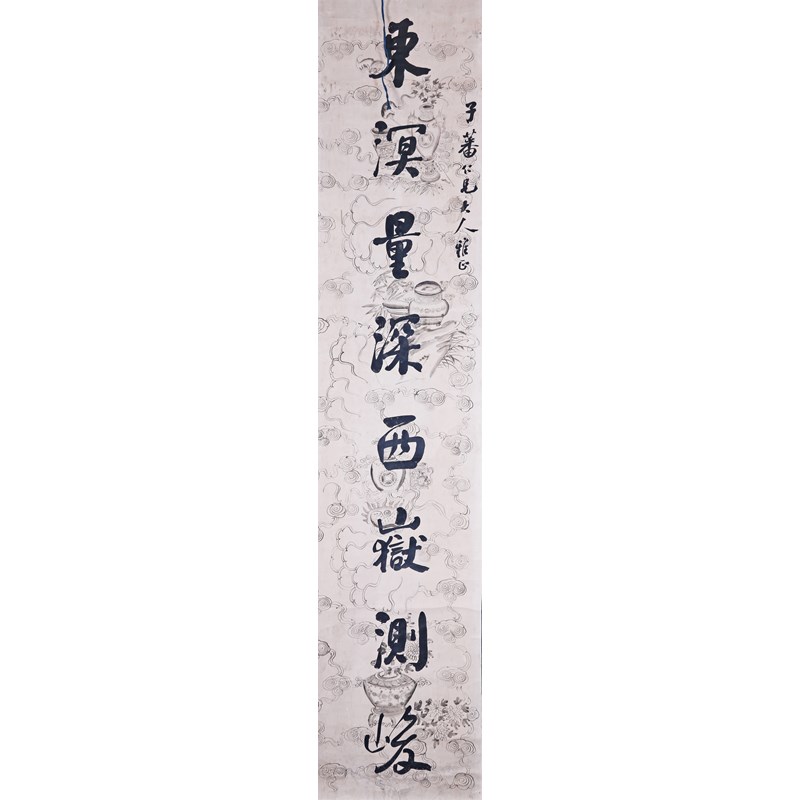 子蕃仁兄大人雅正
東溟量深西嶽測峻